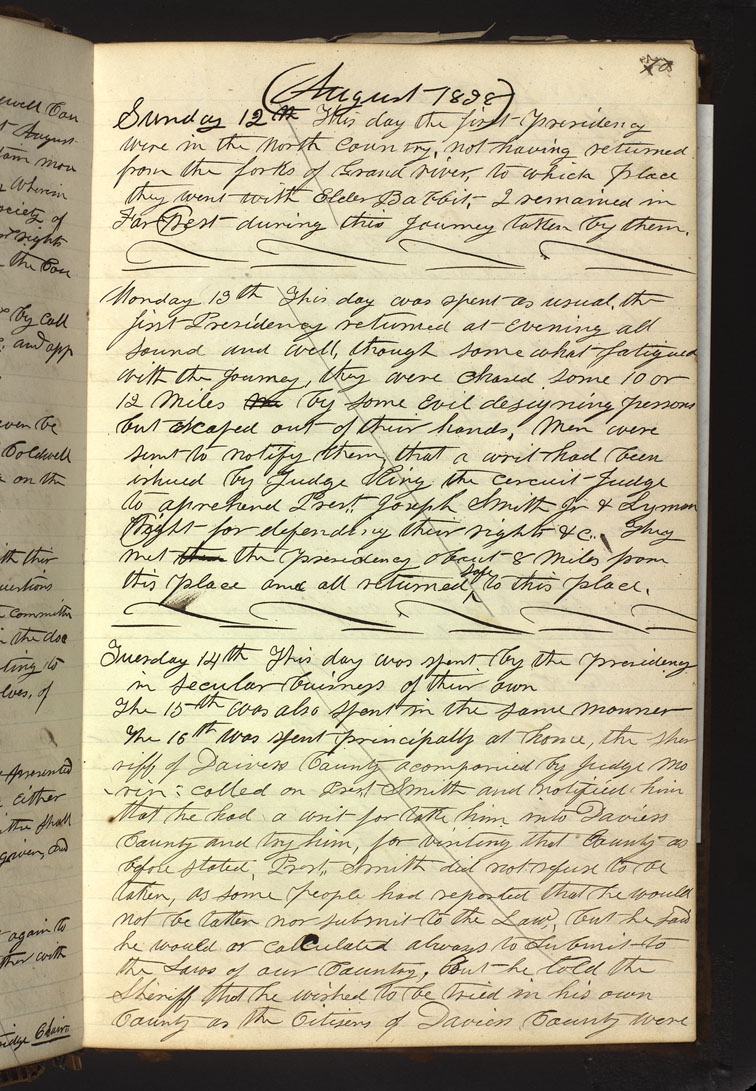 (August 1838)
Sunday 12th This day the first Presidency
were in the North Country, not having returned
from the forks of Grand river, to which place
they went with Elder Babbit, I remained in
Far West during this Journey taken by them.
Monday 13th This day was spent as usual, the
first Presidency returned at evening all
sound and well, though some what fatigued
with the Journey, they were chased some 10 or
12 Miles by some evil designing persons
but escaped out of their hands, Men were
sent to notify them, that a writ had been
ishued by Judge King the circuit Judge
to aprehend Prest. Joseph Smith Jr & Lyman
Wight for defending their rights &c. They
met the Presidency about 8 Miles from
this place and all returned safe to this place.
Tuesday 14th This day was spent by the Presidency
in secular buisness of their own
The 15th was also spent in the same manner
The 16th was spent principally at home, the Sher
riff of Daviess County acompanied by Judge Mo
rin: called on Prest Smith and notified him
that he had a writ for take him into Daviess
County and try him, for visiting that County as
before stated, Prest. Smith did not refuse to be
taken, as some people had reported that he would
not be taken nor submit to the Law, but he said
he would or calculated always to submit to
the Laws of our Country, But he told the
Sheriff that he wished to be tried in his own
County as the Citizens of Daviess County were
ewell Cou
August
Wherein
ociety of
rights
by call
and app
ven be
Coldwell
on the
ith their
uestions
committe
n the doc
ting to
lves, of
presented
either
given, and
again to
ther with
idge Chairm